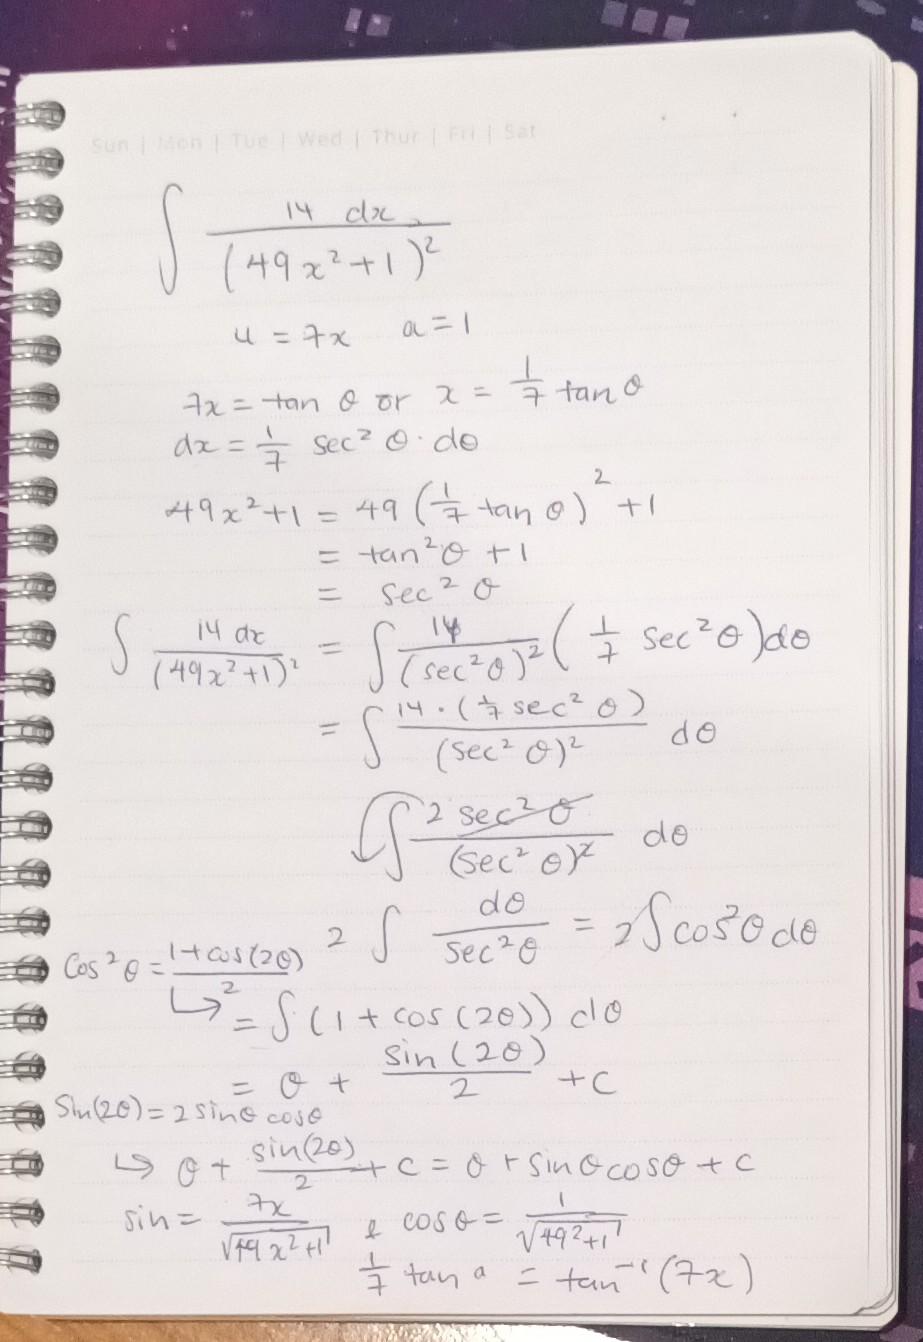 Sun | Mon | Tue | Wed | Thur | Fri | Sat
∫ 14 dx / (49x²+1)²
u = 7x a = 1
7x = tan θ or x = 1/7 tan θ
dx = 1/7 sec² θ · dθ
49x²+1 = 49 (1/7 tan θ)² + 1
= tan²θ + 1
= sec² θ
∫ 14 dx / (49x²+1)² = ∫ 14 / (sec²θ)² (1/7 sec²θ) dθ
= ∫ 14 · (1/7 sec² θ) / (sec² θ)² dθ
∫ 2 sec² θ / (sec² θ)² dθ
2 ∫ dθ / sec²θ = 2∫ cos²θ dθ
Cos²θ = 1+cos(2θ) / 2
↳ = ∫ (1 + cos(2θ)) dθ
= θ + sin(2θ) / 2 + C
Sin(2θ) = 2 sinθ cosθ
↳ θ + sin(2θ) / 2 + C = θ + sinθ cosθ + C
sin = 7x / √(49x²+1) & cosθ = 1 / √(49²+1)
1/7 tan a = tan⁻¹(7x)